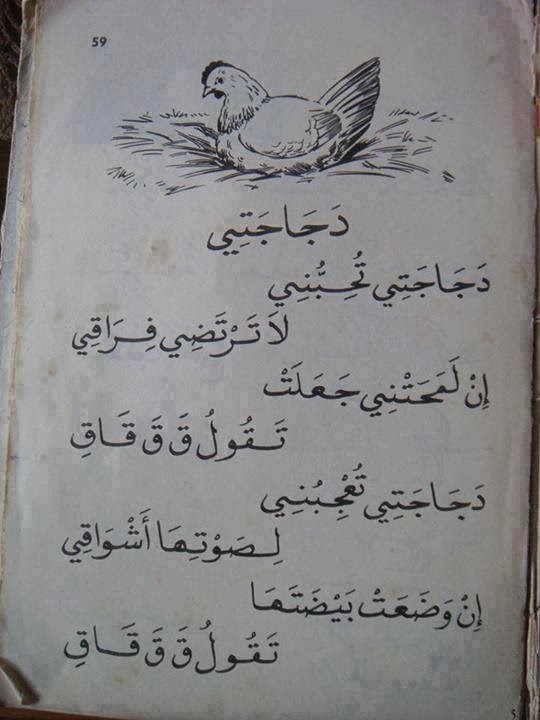 59
دَجَاجَتِي
دَجَاجَتِي تُحِبُّنِي
لَا تَرْتَضِي فِرَاقِي
إِنْ لَمَحَتْنِي جَعَلَتْ
تَقُولُ قَ قَ قَاقِ
دَجَاجَتِي تُعْجِبُنِي
لِصَوْتِهَا أَشْوَاقِي
إِنْ وَضَعَتْ بَيْضَتَهَا
تَقُولُ قَ قَ قَاقِ